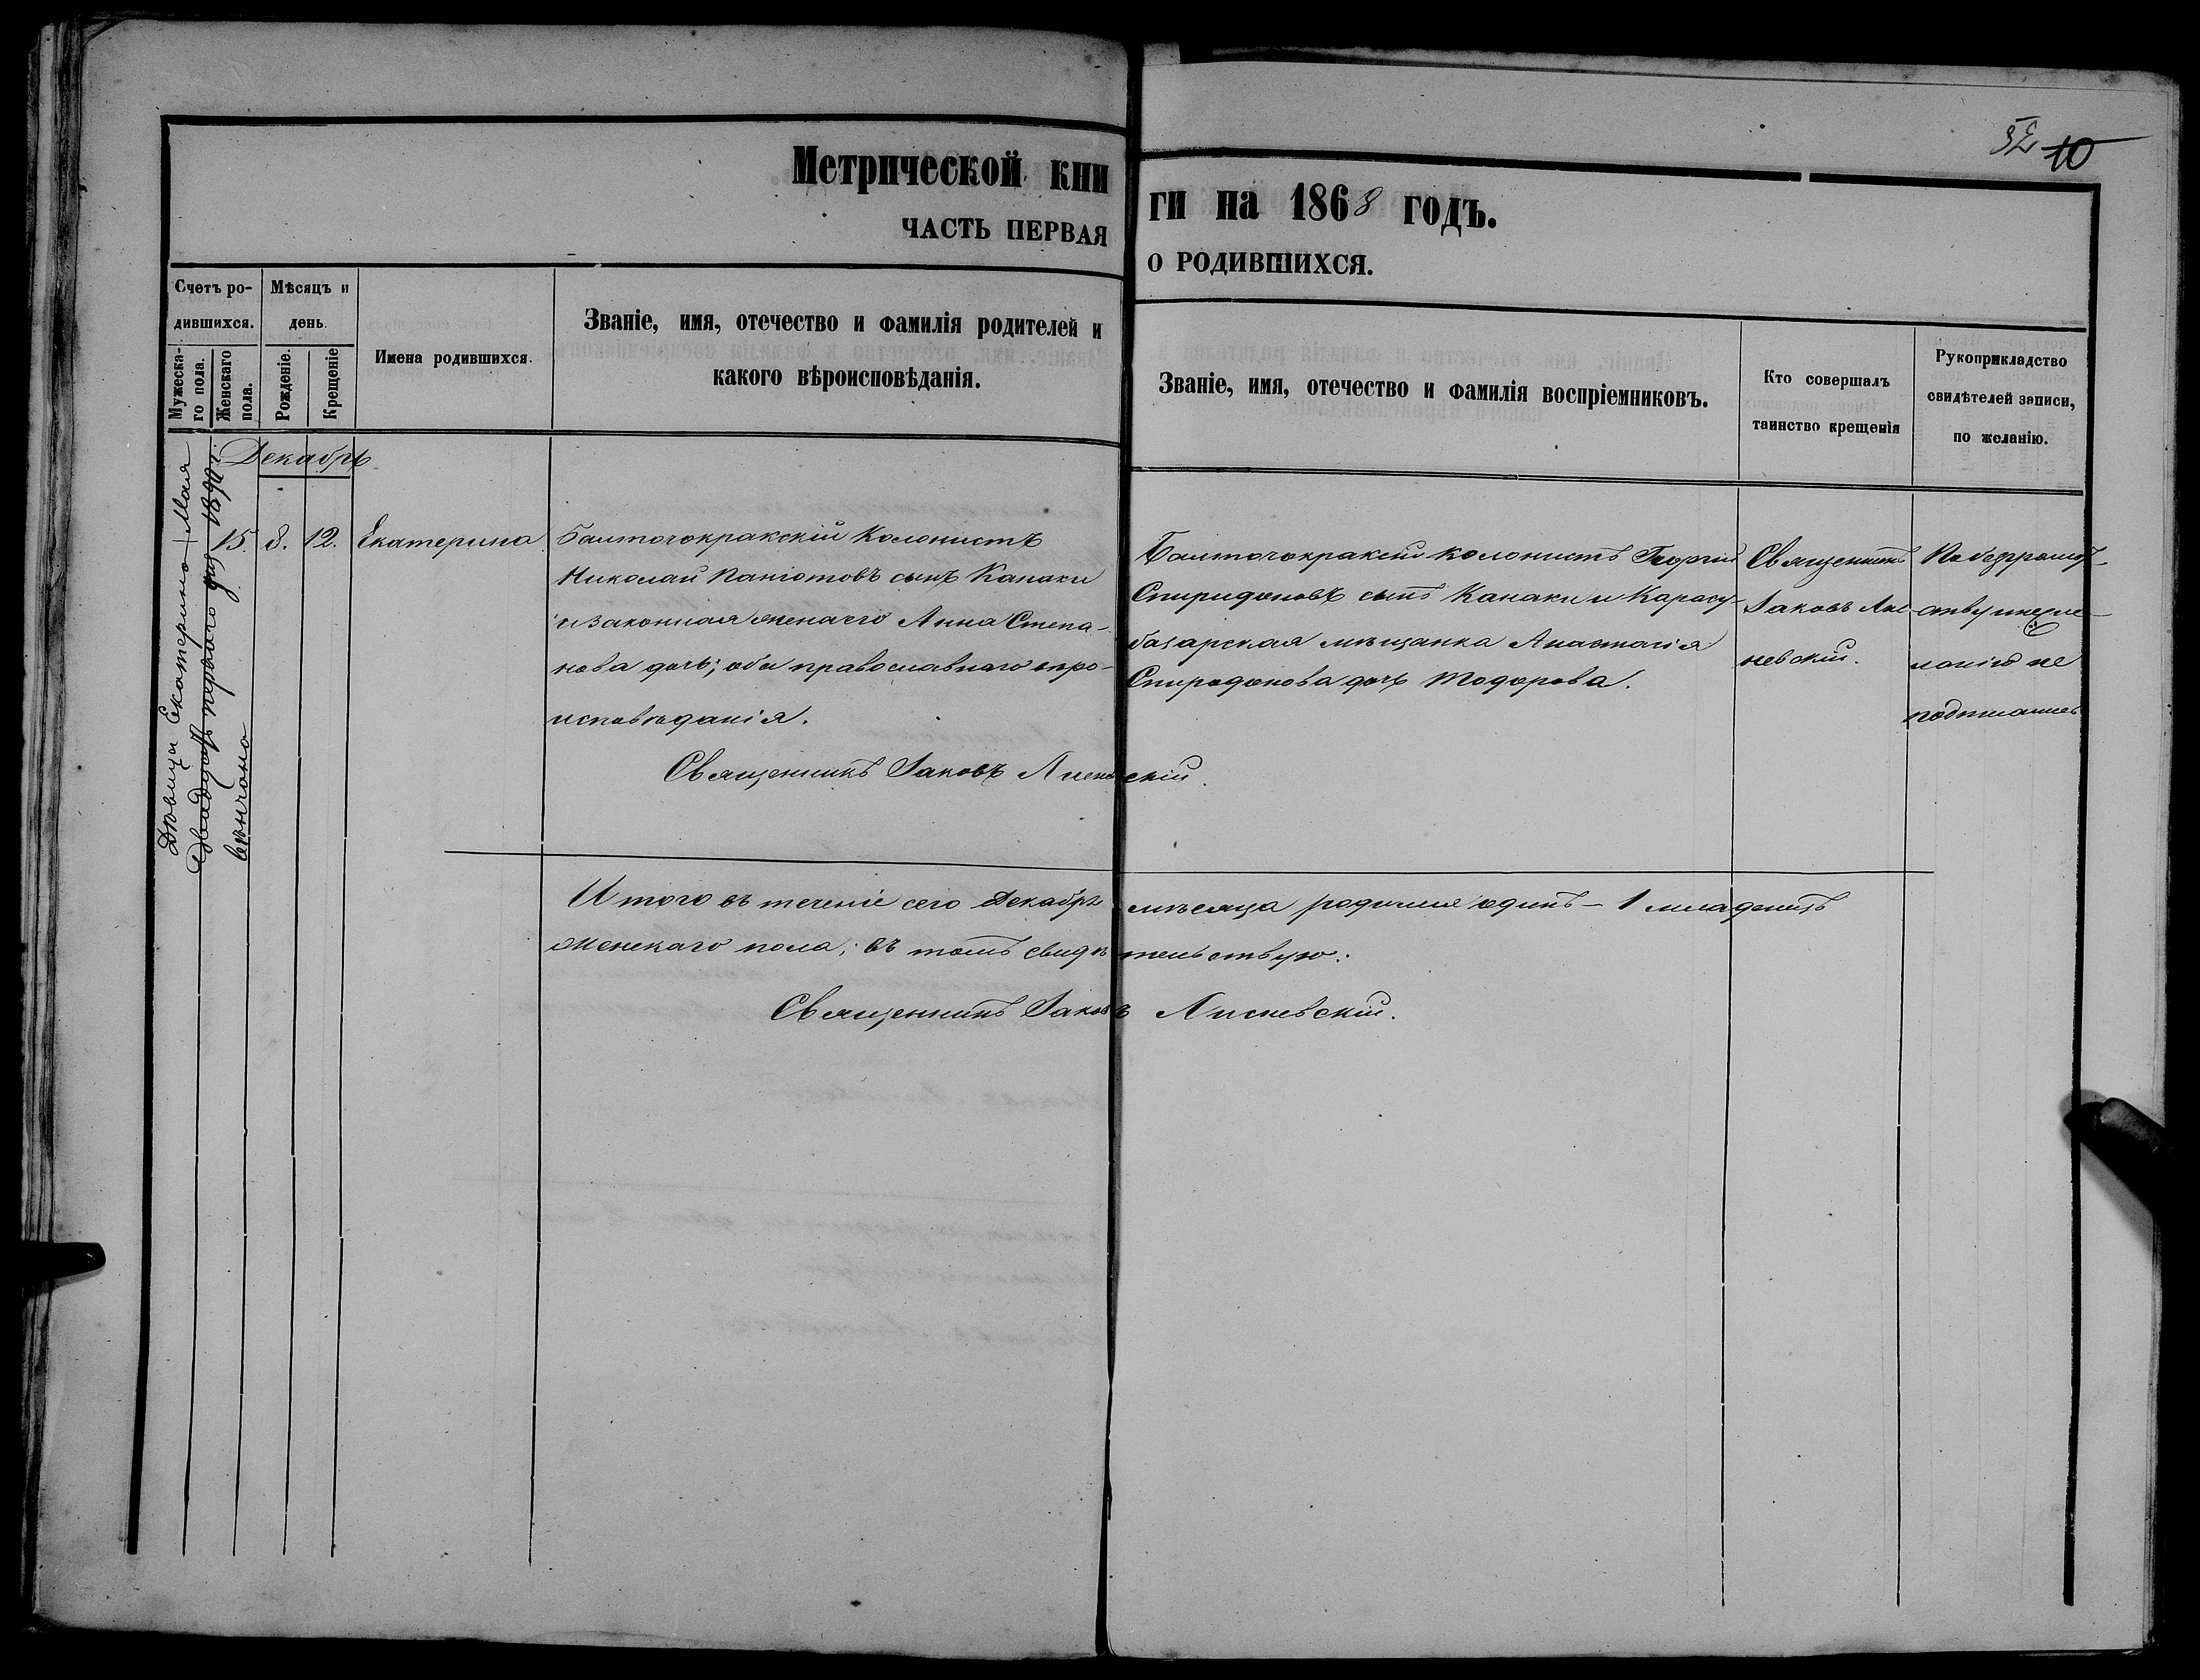 52 10
Метрической кни
ги на 1868 годъ.
ЧАСТЬ ПЕРВАЯ
О РОДИВШИХСЯ.
Счетъ ро-
дившихся.
Мужеска-
го пола.
Женскаго
пола.
Мѣсяцъ и
день.
Рожденіе.
Крещеніе
Имена родившихся.
Званіе, имя, отечество и фамилія родителей и
какого вѣроисповѣданія.
Званіе, имя, отечество и фамилія воспріемниковъ.
Кто совершалъ
таинство крещенія
Рукоприкладство
свидѣтелей записи,
по желанію.
Дѣвица Екатерина Мая
двадцать перваго дня 1890 г.
вѣнчана
Декабрь
15. 8. 12. Екатерина
Балтачокракскій Колонистъ
Николай Паніотовъ сынъ Канаки
и законная жена его Анна Степа-
нова дочь; оба православнаго вѣро-
исповѣданія.
Балтачокракскій колонистъ Георгій
Спиридоновъ сынъ Канаки и Карасу-
базарская мѣщанка Анастасія
Спиридонова дочь Тодорова.
Священникъ
Іаковъ Лис-
невскій.
По безграмот-
ству
не
подписались
Священникъ Іаковъ Лисневскій.
Итого въ теченіе сего Декабрь мѣсяца родился одинъ - 1 младенецъ
женскаго пола; въ томъ свидѣтельствую:
Священникъ Іаковъ Лисневскій.